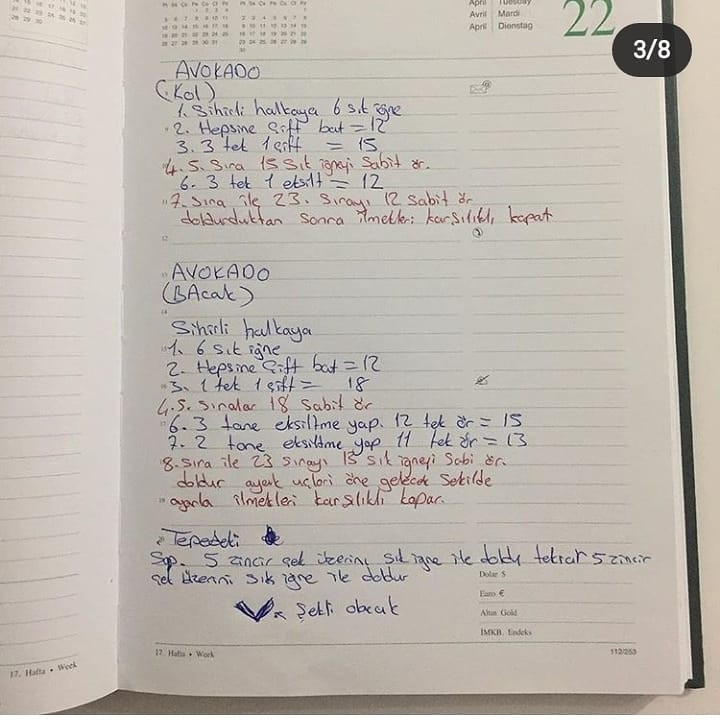 April Tuesday
Avril Mardi
April Dienstag
22
3/8
AVOKADO
(Kol)
1. Sihirli halkaya 6 sık iğne
2. Hepsine çift bat = 12
3. 3 tek 1 çift = 15
4. 5. Sıra 15 Sık iğneyi Sabit ör.
6. 3 tek 1 eksilt = 12
7. Sıra ile 23. Sırayı 12 Sabit ör
doldurduktan sonra ilmekleri karşılıklı kapat
AVOKADO
(BAcak)
Sihirli halkaya
1. 6 sık iğne
2. Hepsine çift bat = 12
3. 1 tek 1 çift = 18
4. 5. Sıralar 18 Sabit ör
6. 3 tane eksiltme yap. 12 tek ör = 15
7. 2 tane eksiltme yap 11 tek ör = 13
8. Sıra ile 23 sırayı 13 sık iğneyi Sabi ör.
doldur ayak uçları öne gelecek Şekilde
ayarla ilmekleri karşılıklı kapar.
Tepedeki
Sap. 5 zincir çek üzerini sık iğne ile doldu tekrar 5 zincir
çek üzerini sık iğne ile doldur
Şekli olacak
Dolar $
Euro €
Altın Gold
İMKB. Endeks
17. Hafta • Week
17. Hafta • Week
112/253